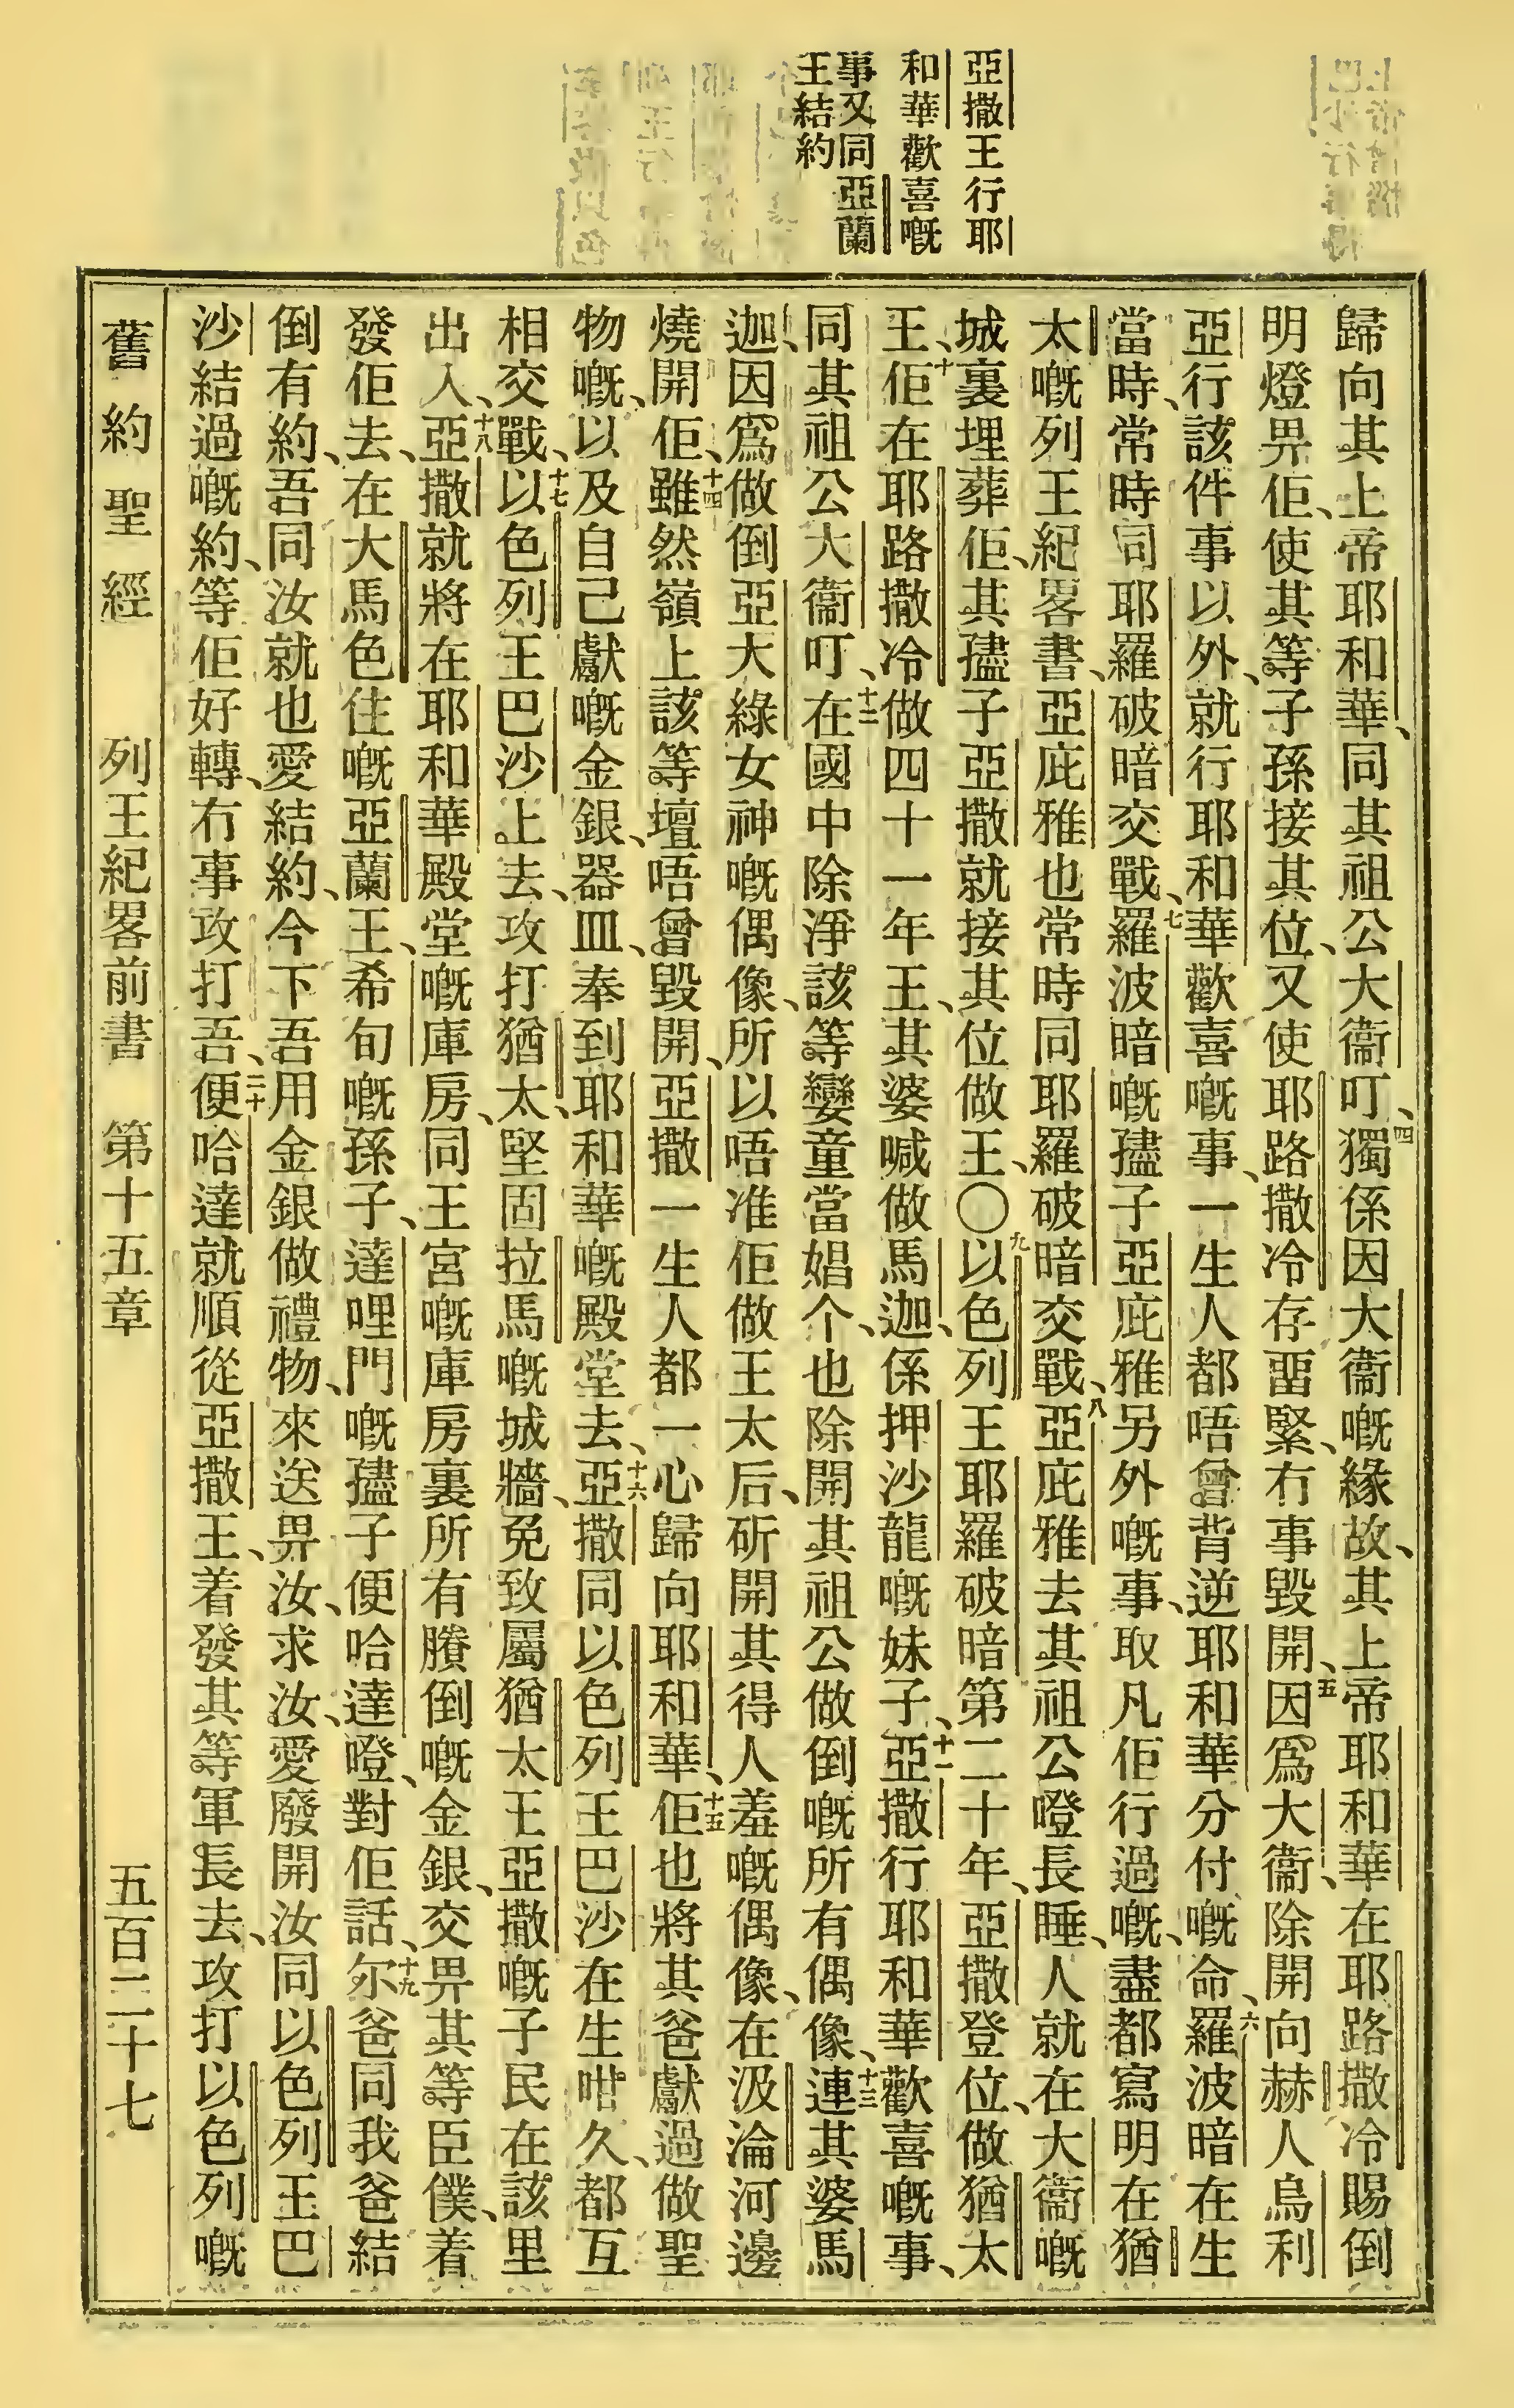 亞撒王行耶
和華歡喜嘅
事又同亞蘭
王結約
歸向其上帝耶和華、同其祖公大衞叮、四獨係因大衞嘅緣故、其上帝耶和華在耶路撒冷賜倒
明燈畀佢、使其等子孫接其位、又使耶路撒冷存畱緊、冇事毀開、五因爲大衞、除開向赫人烏利
亞行該件事以外、就行耶和華歡喜嘅事、一生人都唔曾背逆耶和華分付嘅命、六羅波暗在生
當時、常時同耶羅破暗交戰、七羅波暗嘅孻子亞庇雅另外嘅事、取凡佢行過嘅、盡都寫明在猶
太嘅列王紀畧書、亞庇雅也常時同耶羅破暗交戰、八亞庇雅去其祖公噔長睡、人就在大衞嘅
城裏埋葬佢、其孻子亞撒就接其位做王、〇九以色列王耶羅破暗第二十年、亞撒登位、做猶太
王、十佢在耶路撒冷做四十一年王、其婆喊做馬迦、係押沙龍嘅妹子、十一亞撒行耶和華歡喜嘅事、
同其祖公大衞叮、十二在國中除淨該等孌童當娼个、也除開其祖公做倒嘅所有偶像、十三連其婆馬
迦、因爲做倒亞大綠女神嘅偶像、所以唔准佢做王太后、斫開其得人羞嘅偶像、在汲淪河邊
燒開佢、十四雖然嶺上該等壇唔曾毀開、亞撒一生人都一心歸向耶和華、十五佢也將其爸獻過做聖
物嘅、以及自己獻嘅金銀、器皿、奉到耶和華嘅殿堂去、十六亞撒同以色列王巴沙在生咁久、都互
相交戰、十七以色列王巴沙上去、攻打猶太、堅固拉馬嘅城牆、免致屬猶太王亞撒嘅子民在該里
出入、十八亞撒就將在耶和華殿堂嘅庫房、同王宮嘅庫房裏所有賸倒嘅金銀、交畀其等臣僕、着
發佢去、在大馬色住嘅亞蘭王、希旬嘅孫子、達哩門嘅孻子便哈達噔、對佢話、十九尔爸同我爸結
倒有約、吾同汝就也愛結約、今下吾用金銀做禮物、來送畀汝、求汝、愛廢開汝同以色列王巴
沙結過嘅約、等佢好轉、冇事攻打吾、二十便哈達就順從亞撒王、着發其等軍長去、攻打以色列嘅
舊約聖經 列王紀畧前書 第十五章 五百二十七